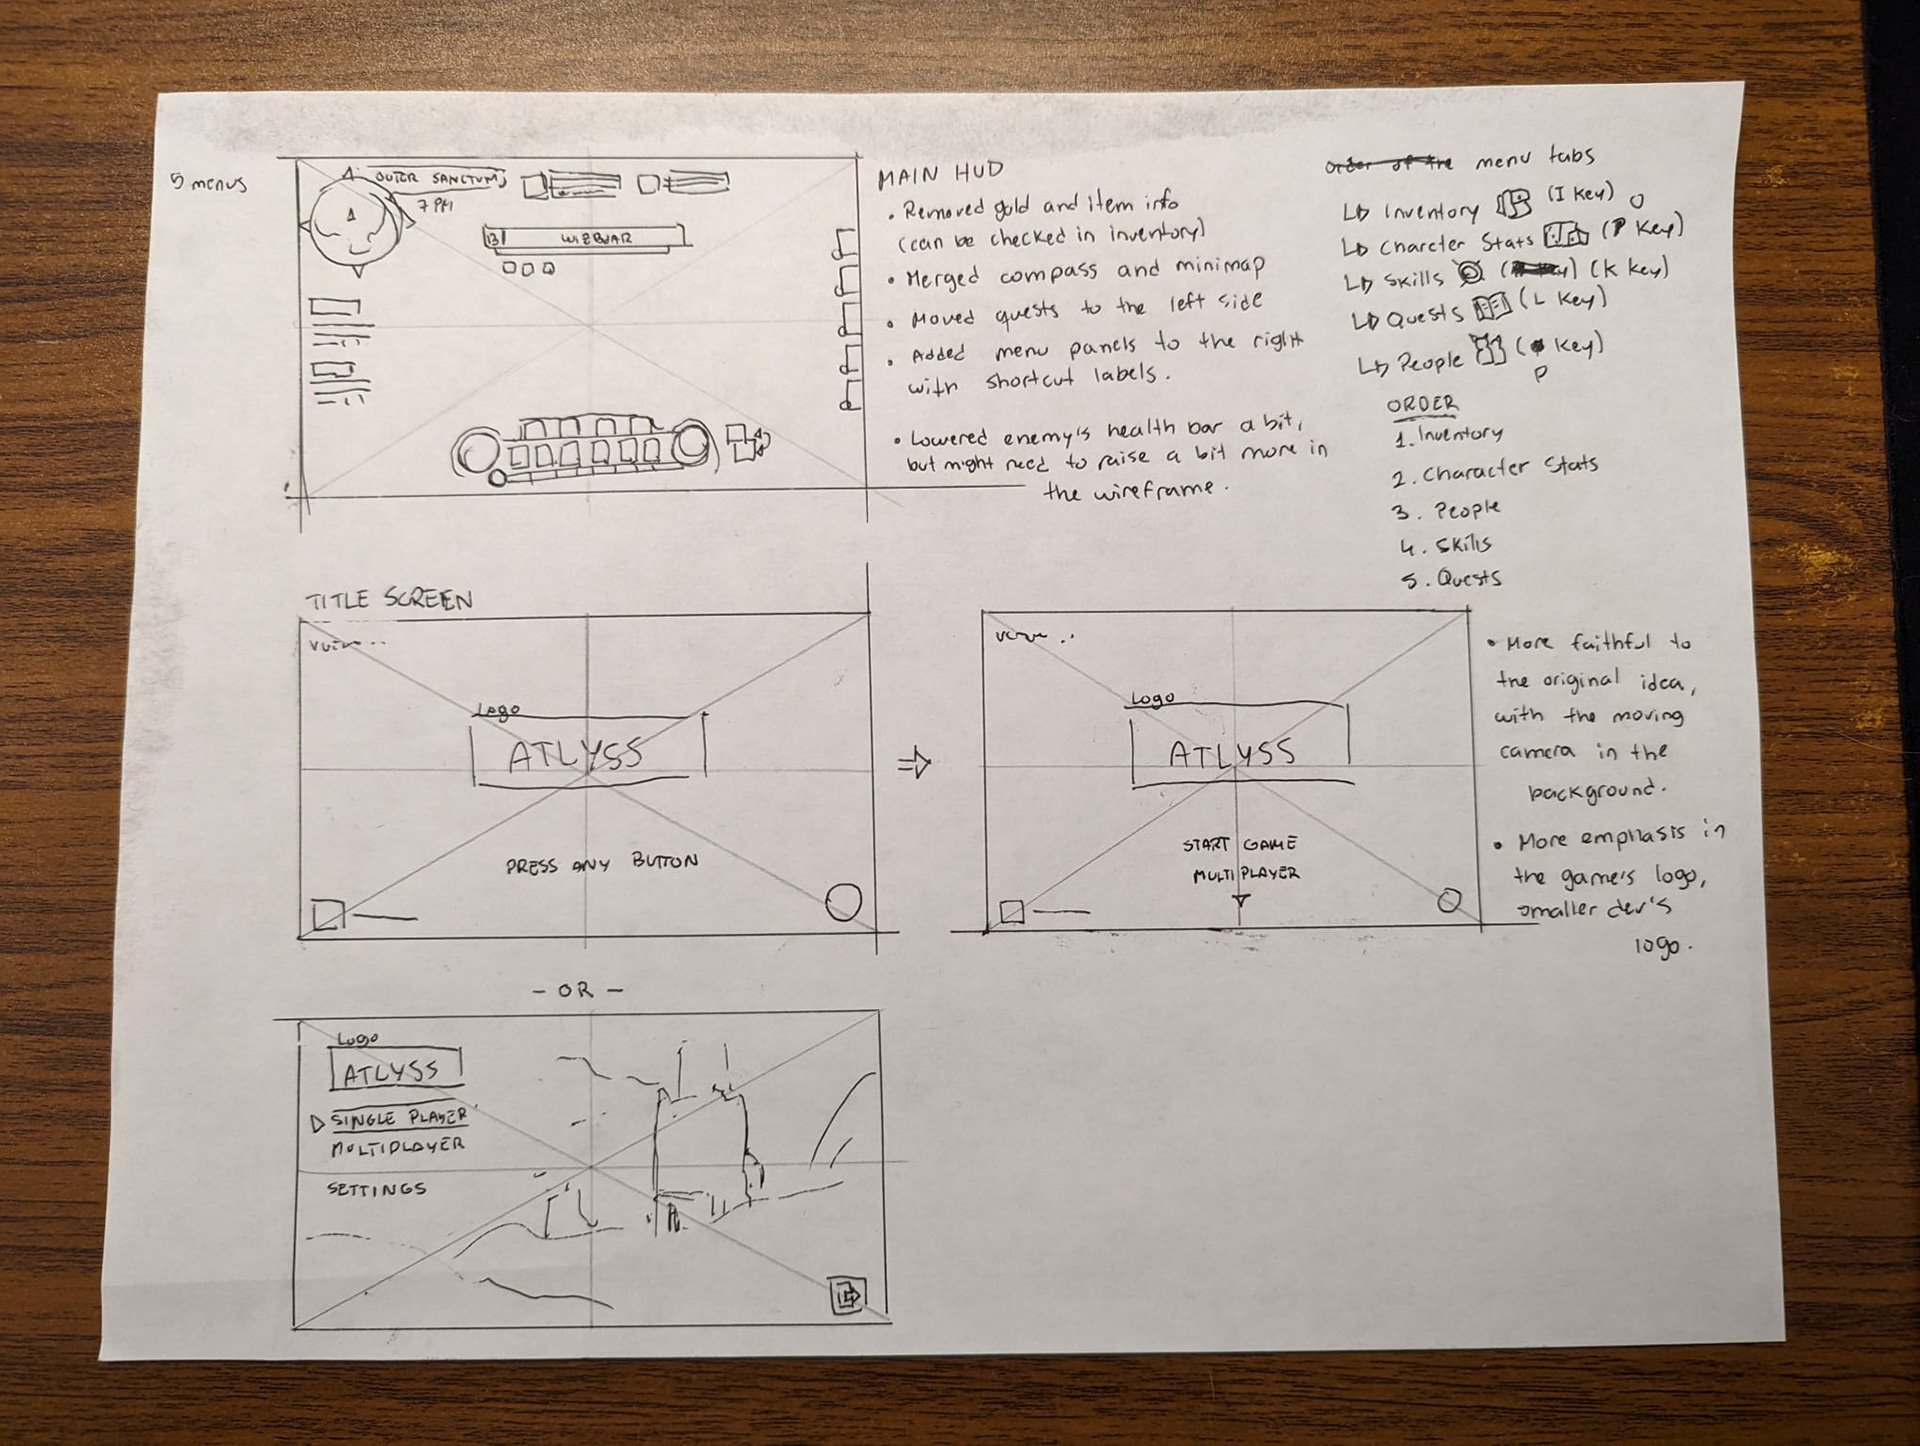 5 menus
OUTER SANCTUM
7 PM
13
WIZBOAR
MAIN HUD
• Removed gold and item info
(can be checked in inventory)
• Merged compass and minimap
• Moved quests to the left side
• Added menu panels to the right
with shortcut labels.
• Lowered enemy's health bar a bit,
but might need to raise a bit more in
the wireframe.
Order of the menu tabs
Inventory (I Key)
Charcter Stats (P Key)
Skills (K Key)
Quests (L Key)
People ( Key)
P
ORDER
1. Inventory
2. Character Stats
3. People
4. Skills
5. Quests
TITLE SCREEN
Logo
ATLYSS
PRESS ANY BUTTON
Logo
ATLYSS
START GAME
MULTIPLAYER
• More faithful to
the original idea,
with the moving
camera in the
background.
• More emphasis in
the game's logo,
smaller dev's
logo.
- OR -
Logo
ATLYSS
SINGLE PLAYER
MULTIPLAYER
SETTINGS